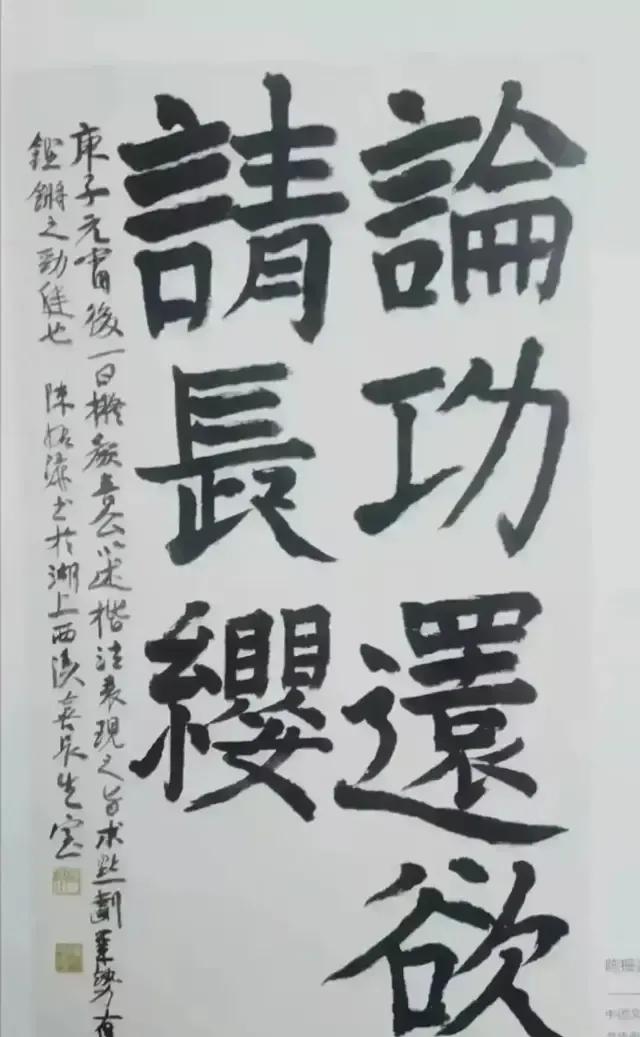 論功還欲
請長纓
庚子元宵後一日擬顏魯公以述楷法表現之旨求點劃筆勢有
鏗鏘之勁健也 陳振濂書於湖上西溪
陈振